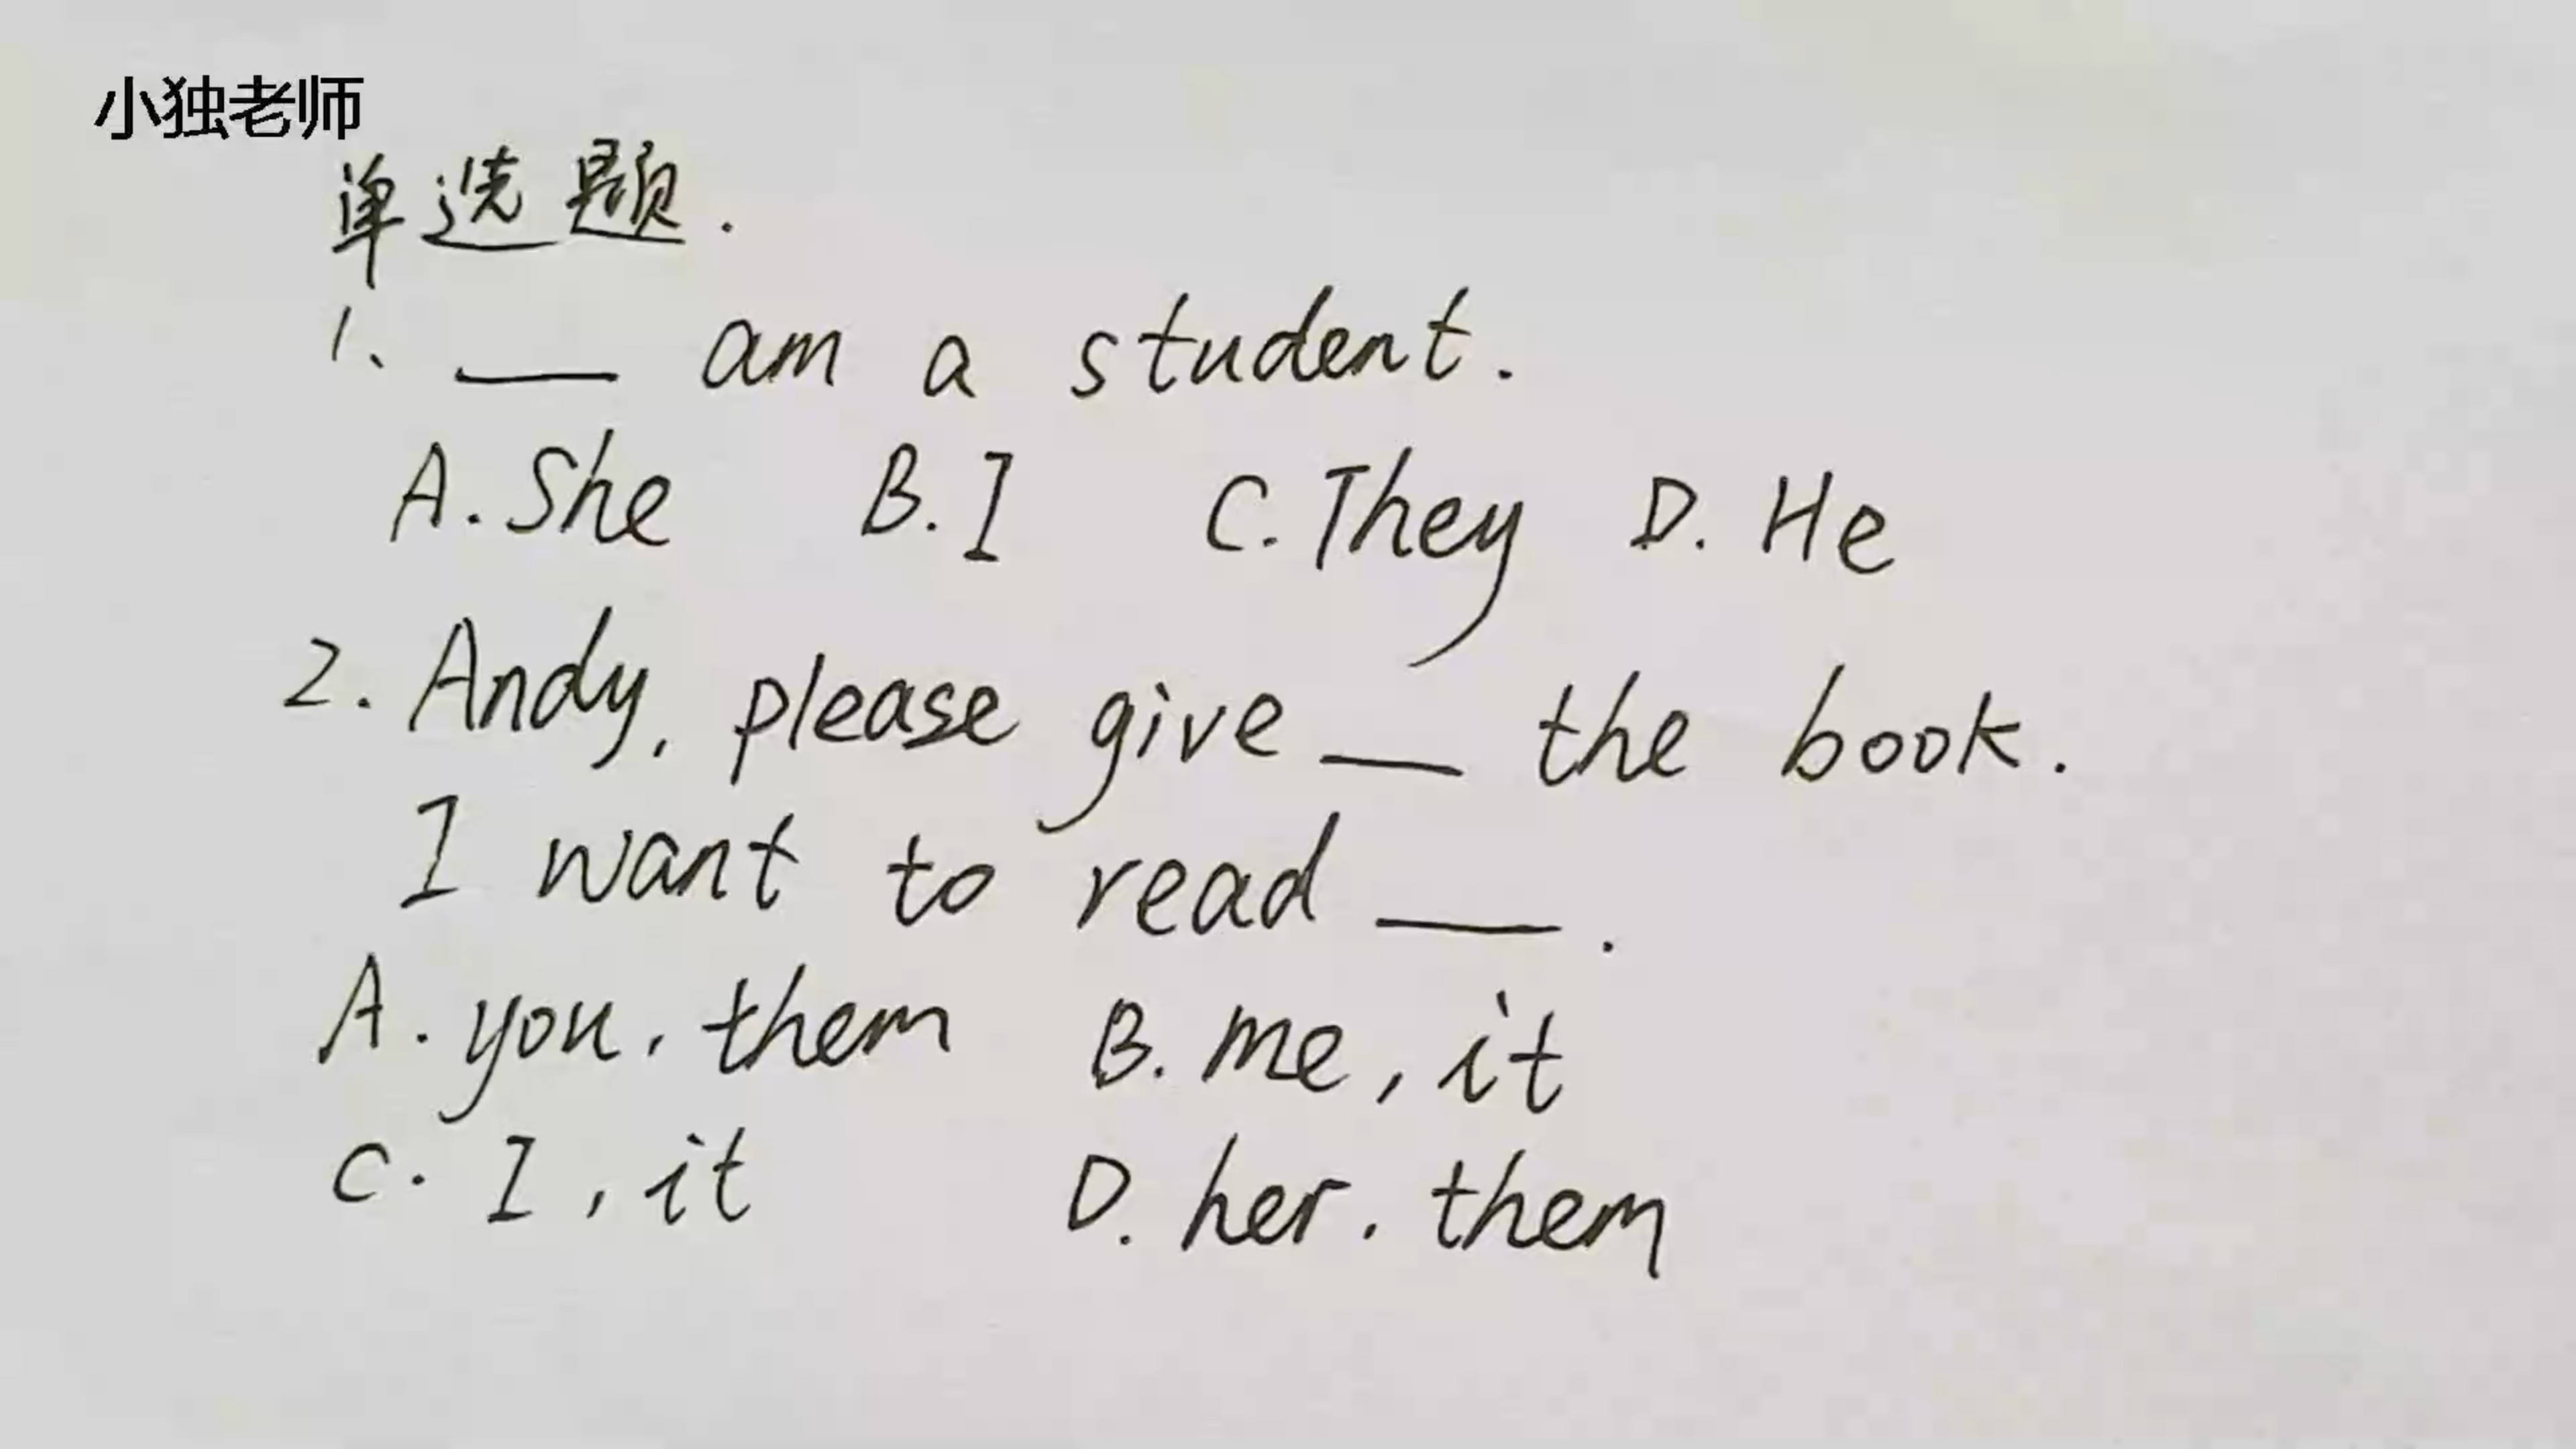 小独老师
单选题.
1、___ am a student.
A. She B. I C. They D. He
2. Andy, please give ___ the book.
I want to read ___.
A. you, them B. me, it
C. I, it D. her, them